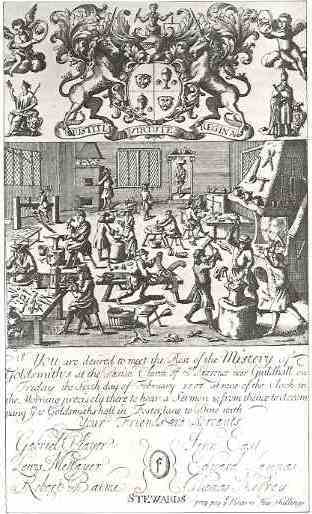 IUSTITIA VIRTUTUM REGINA
Sr. You are desired to meet the Rest of the Mistery of
Goldsmiths at the Church of St near Guildhall on
Friday the sixth day of February at nine of the Clock in
the Morning precisely there to hear a Sermon & from thence to Accom
pany to Goldsmiths hall in Fosterlane to dine with
Your Friends and Servants
Gabriel Player John East
Lewis Mettayer Edward
Robert Thomas
STEWARDS pray pay ye Bearer shillings